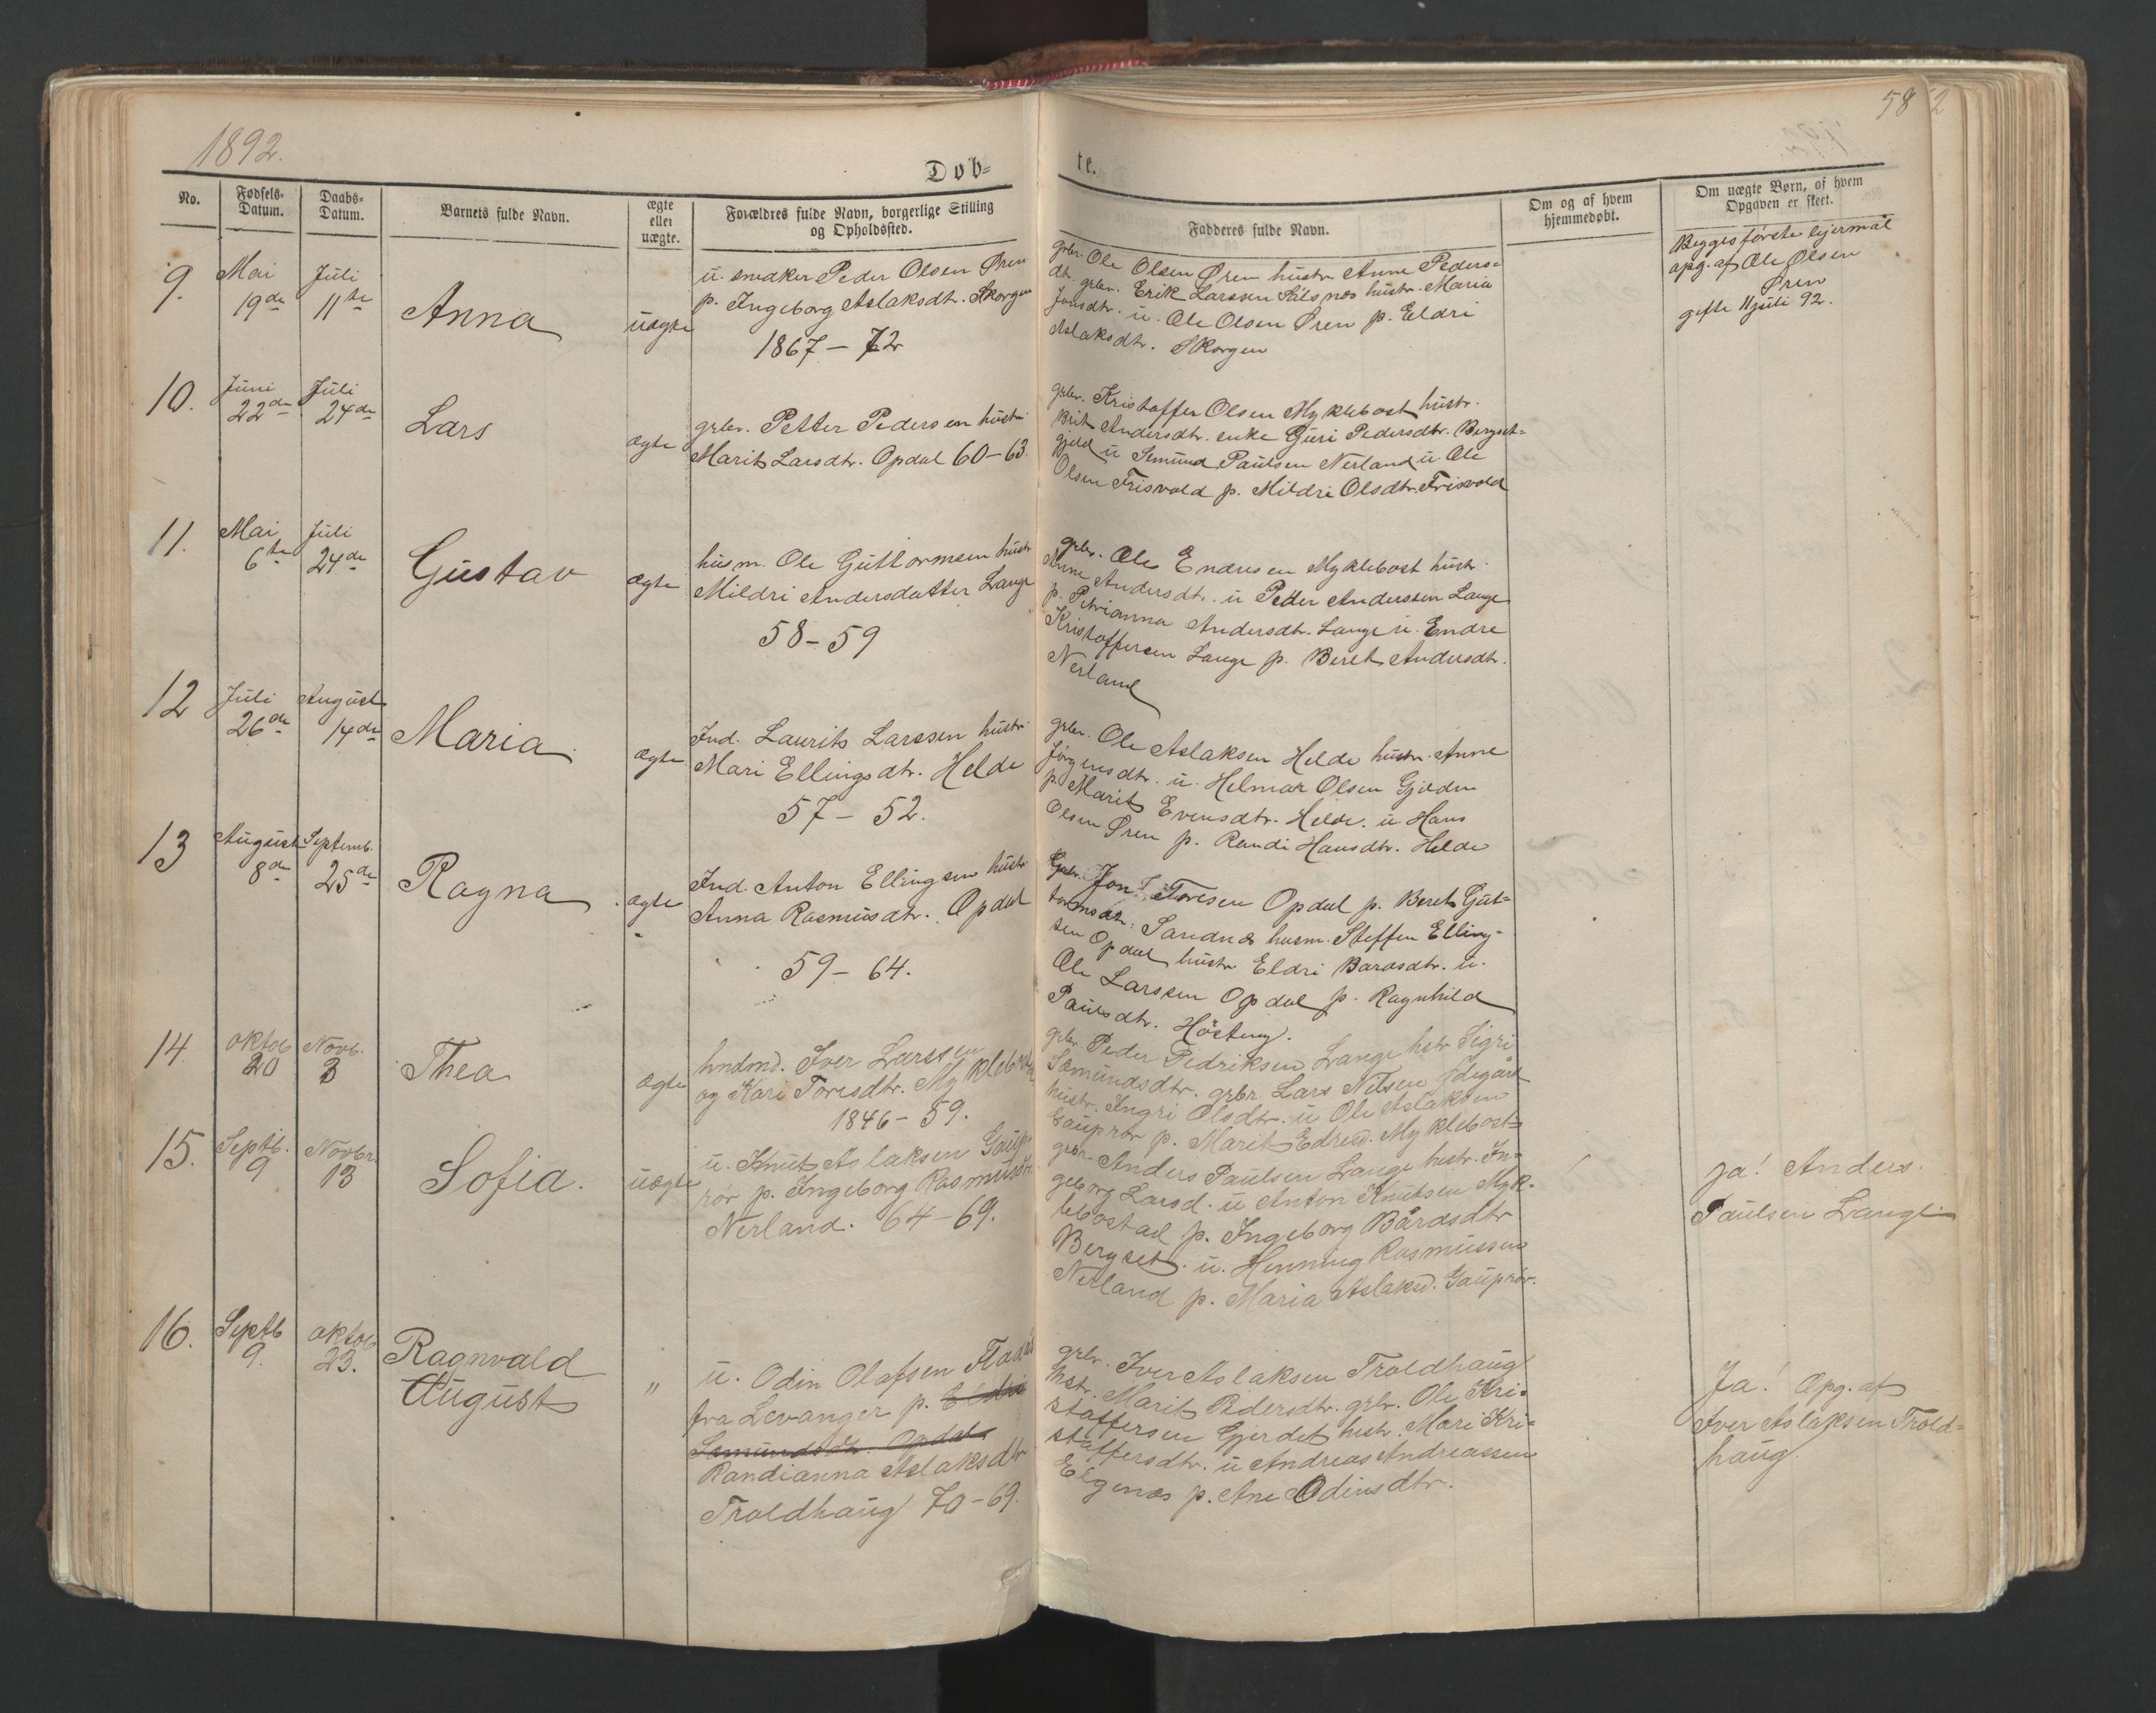 1892.
58 2
Døb=
te.
No.
Fødsels-
Datum.
Daabs-
Datum.
Barnets fulde Navn.
ægte
eller
uægte.
Forældres fulde Navn, borgerlige Stilling
og Opholdssted.
Fadderes fulde Navn.
Om og af hvem
hjemmedøbt.
Om uægte Børn, af hvem
Opgaven er skeet.
9.
Mai
19de
Juli
11te
Anna
uægte
u. snedker Peder Olsen Øren
p. Ingeborg Aslaksdtr. Skorgen
1867 - 72
grbr. Ole Olsen Øren hustr. Anne Peders=
dt. grbr. Erik Larssen Silsnes hustr. Maria
Jonsdtr. u. Ole Olsen Øren p. Eldri
Aslaksdtr. Skorgen
Begges første lejermål
opg. af Ole Olsen
Øren
gifte 11 juli 92.
10.
Juni
22de
Juli
24de
Lars
ægte
grbr. Petter Pedersen hustr.
Marit Larsdtr. Opdal 60-63.
grbr. Kristoffer Olsen Myklebost hustr.
Brit Andersdtr. enke Guri Pedersdtr. Bergset=
gjeld u Semund Paulsen Nerland u. Ole
Olsen Frisvold p. Mildri Olsdtr. Frisvold
11.
Mai
6te
Juli
24de
Gustav
ægte
husm. Ole Guttormsen hustr
Mildri Andersdatter Lange
58-59
grbr. Ole Endresen Myklebost hustr.
Anne Andersdtr. u Petter Anderssen Lange
p. Petrianna Andersdtr. Lange u. Endre
Kristoffersen Lange p. Beret Andersdtr.
Nerland
12
Juli
26de
August
14de
Maria
ægte
Ind. Laurits Larssen hustr.
Mari Ellingsdtr. Helde
57 - 52.
grbr. Ole Aslaksen Helde hustr. Anne
Jørgensdtr. u. Helmar Olsen Gjelden
p. Marit Evensdtr. Helde. u. Hans
Olsen Øren p. Randi Hansdtr. Helde
13
August
8de
Septemb.
25de
Ragna
ægte
Ind. Anton Ellingsen hustr
Anna Rasmusdtr. Opdal
59-64.
Grbr. Jon Toresen Opdal p. Beret Gut=
tormsdtr. Sandnes husm. Steffen Elling-
sen Opdal hustr. Eldri Bardsdtr. u.
Ole Larssen Opdal p. Ragnhild
Paulsdtr. Hösteng.
14.
oktob
20
Novb.
3
Thea
ægte
hndmd. Iver Larssen
og Kari Toresdtr. Myklebost
1846-59.
grbr. Peder Fedriksen Lange hstr Sigri
Sæmundsdtr. grbr. Lars Nilsen Idegård
hustr. Ingri Olsdtr. u Ole Aslaksen
Gauprør p. Marit Edresd. Myklebost
15.
Septb.
9
Novbr.
13
Sofia.
uægte
u. Knut Aslaksen Gaup-
rör p. Ingeborg Rasmusdtr
Nerland. 64-69.
grbr. Anders Paulsen Lange hustr. In=
geborg Larsd. u Anton Knutsen Myk=
lebostad p. Ingeborg Bårdsdtr
Bergset. u. Henning Rasmussen
Nerland p. Maria Aslaksd. Gauprör.
ja! Anders
Paulsen Lange
16.
Septb
9.
oktob
23.
Ragnvald
August
"
u. Odin Olafsen
fra Levanger p. Eldri
Semundsdtr. Opdal
Randianna Aslaksdtr
Troldhaug 70-69.
grbr. Iver Aslaksen Troldhaug
hstr. Marit Pedersdtr. grbr. Ole Kri=
stoffersen Gjerdet hustr. Mari Kri=
stoffersdtr. u Andreas Andreassen
Elgenes p. Ane Odinsdtr.
Ja! Opg. af
Iver Aslaksen Trold=
haug.